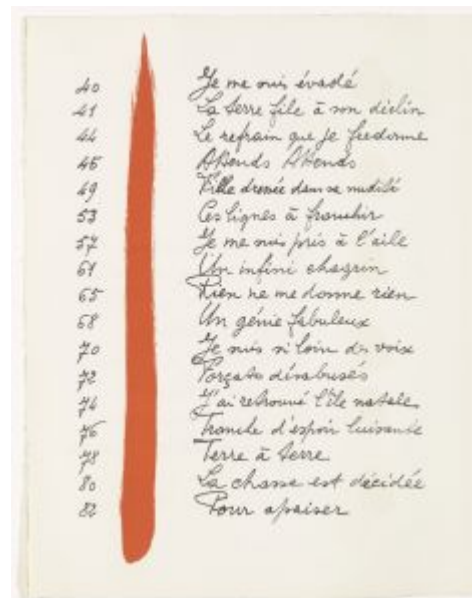 40 Je me suis évadé
41 La terre file à son déclin
44 Le refrain que je fredonne
45 Attends Attends
49 Fille dressée dans sa nudité
53 Ces lignes à franchir
57 Je me suis pris à l'aile
61 Un infini chagrin
65 Rien ne me donne rien
68 Un génie fabuleux
70 Je suis si loin des voix
72 Forçats désabusés
74 J'ai retrouvé l'île natale
76 d'espoir luisante
78 Terre à terre
80 La chasse est décidée
82 Pour apaiser